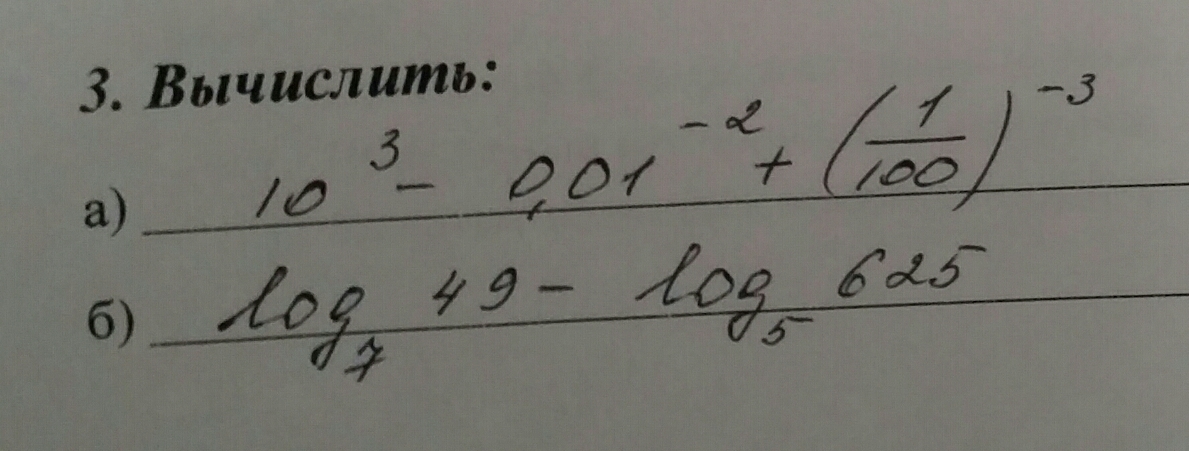 3. Вычислить:
а) 10³ - 0,01⁻² + (1/100)⁻³
б) log₇ 49 - log₅ 625